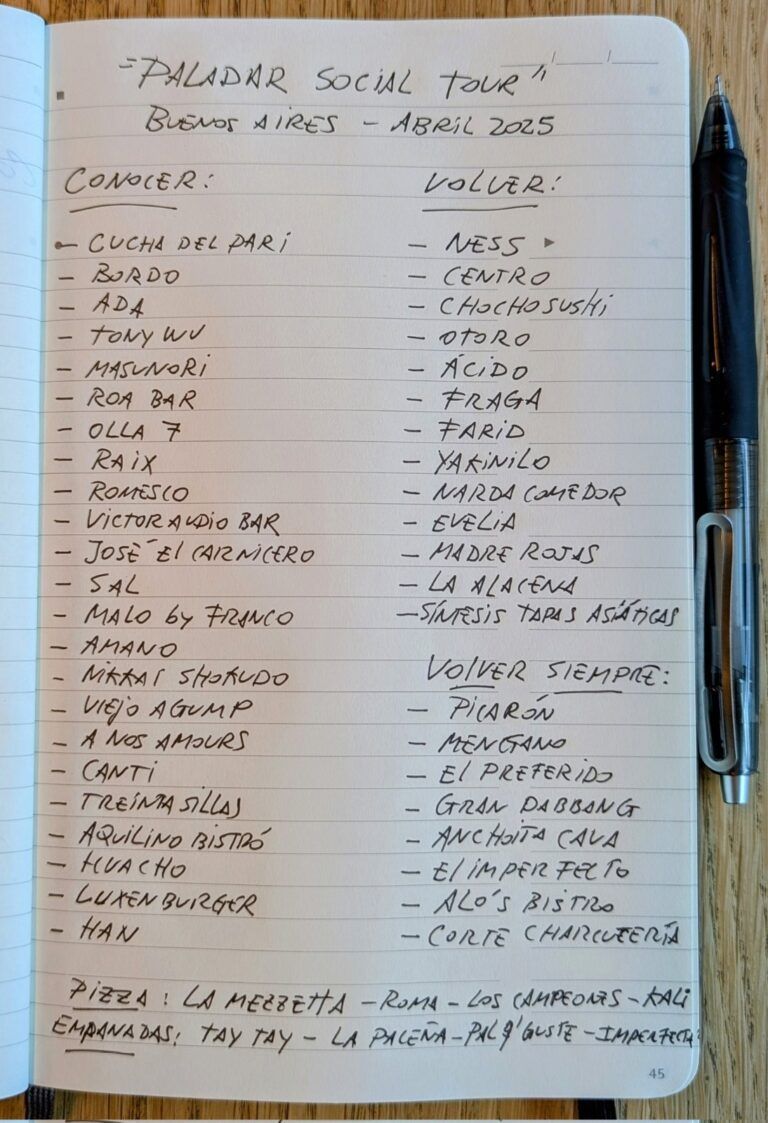 "PALADAR SOCIAL TOUR"
BUENOS AIRES - ABRIL 2025
CONOCER:
- CUCHA DEL PARI
- BORDO
- ADA
- TONY WU
- MASUNORI
- ROA BAR
- OLLA 7
- RAIX
- ROMESCO
- VICTOR AUDIO BAR
- JOSÉ El CARNICERO
- SAL
- MALO by FRANCO
- AMANO
- NIKKAI SHOKUDO
- VIEJO AGUMP
- A NOS AMOURS
- CANTI
- TREINTA SILLAS
- AQUILINO BISTRÓ
- HUACHO
- LUXENBURGER
- HAN
VOLVER:
- NESS
- CENTRO
- CHOCHOSUSHI
- OTORO
- ÁCIDO
- FRAGA
- FARID
- YAKINILO
- NARDA COMEDOR
- EVELIA
- MADRE ROJAS
- LA ALACENA
- SÍNTESIS TAPAS ASIÁTICAS
VOLVER SIEMPRE:
- PICARÓN
- MENGANO
- El PREFERIDO
- GRAN DABBANG
- ANCHOITA CAVA
- El IMPERFECTO
- ALO'S BISTRO
- CORTE CHARCUTERÍA
PIZZA: LA MEZZETTA - ROMA - LOS CAMPEONES - KALI
EMPANADAS: TAY TAY - LA PACEÑA - PAL Q' GUSTE - IMPERFECTA
45